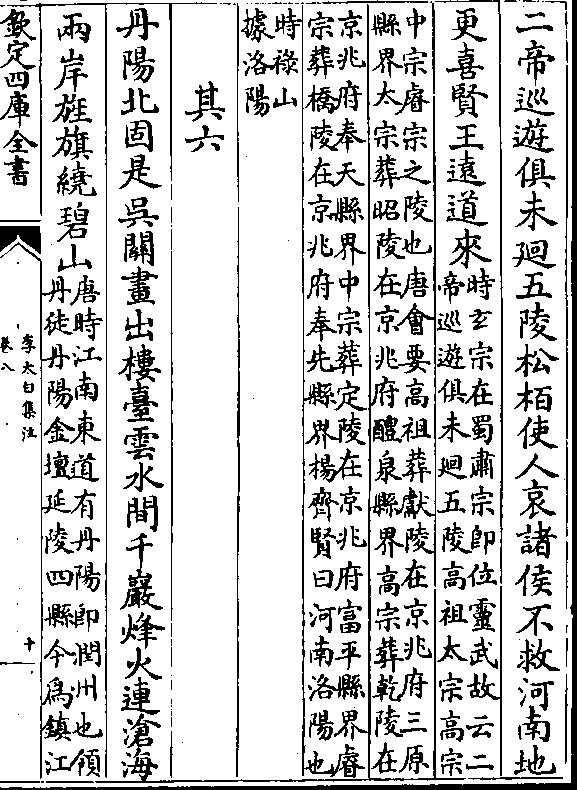 二帝巡遊俱未廻五陵松栢使人哀諸侯不救河南地
更喜賢王遠道來
時玄宗在蜀肅宗即位靈武故云二
帝巡遊俱未廻五陵高祖太宗高宗
中宗睿宗之陵也唐會要高祖葬獻陵在京兆府三原
縣界太宗葬昭陵在京兆府醴泉縣界高宗葬乾陵在
京兆府奉天縣界中宗葬定陵在京兆府富平縣界睿
宗葬橋陵在京兆府奉先縣界楊齊賢曰河南洛陽也
時祿山
據洛陽
其六
丹陽北固是吳關畫出樓臺雲水間千巖烽火連滄海
兩岸旌旗繞碧山
唐時江南東道有丹陽即潤州也領
丹徒丹陽金壇延陵四縣今為鎮江
欽定四庫全書
李太白集注
卷八
十